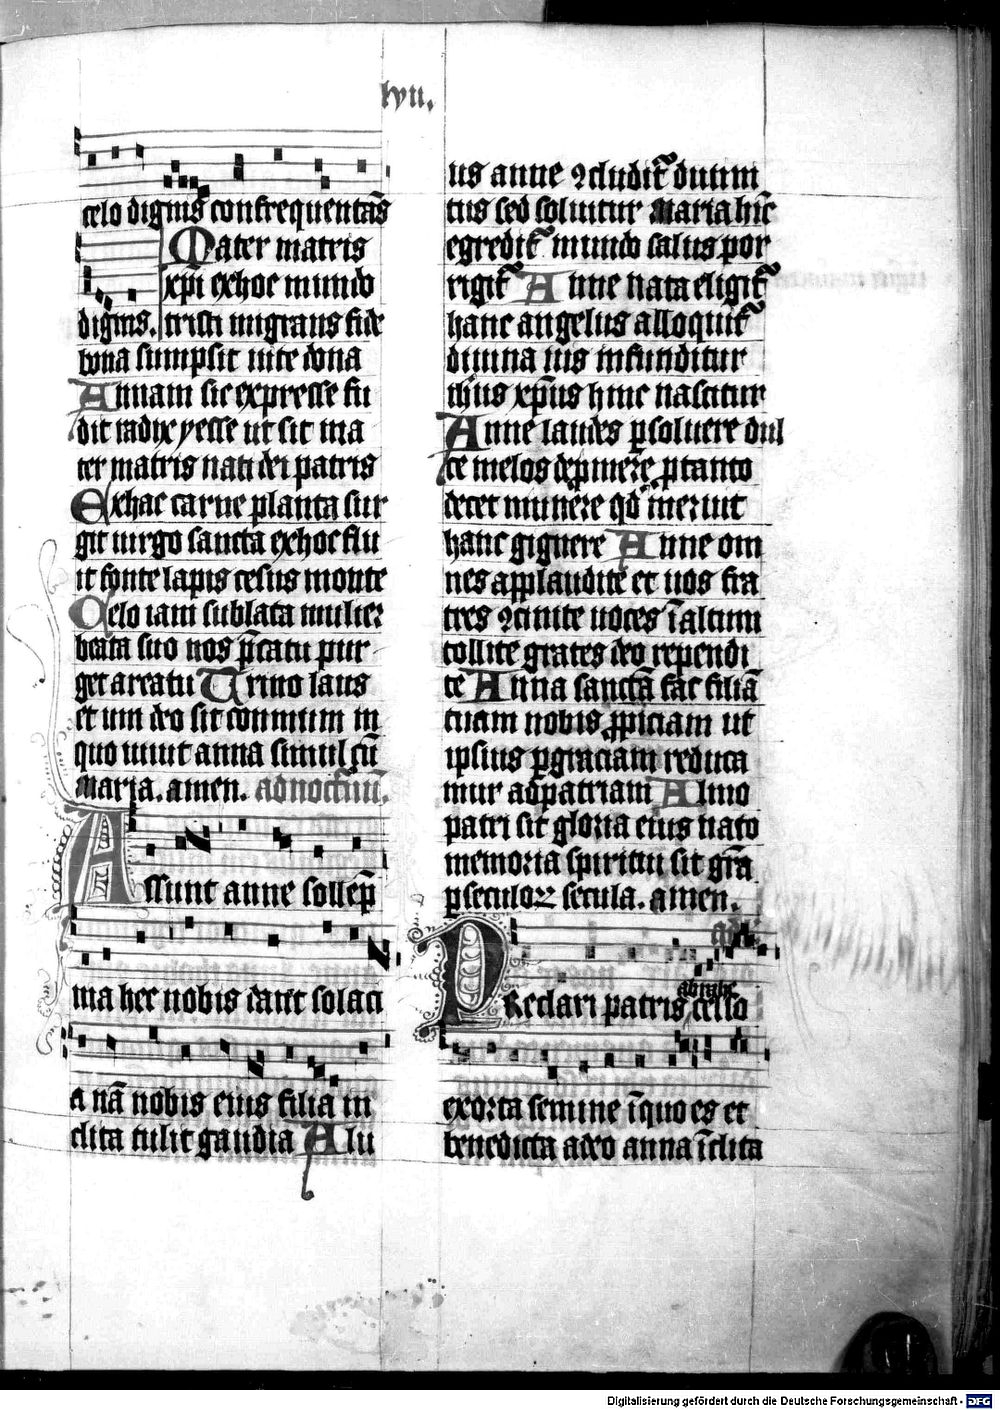 lvii.
celo dignis confrequentās
Mater matris
xp̄i ex hoc mundo
dignis. tristi migrans fide
bona sumpsit vite dona
Annam sic expresse fu
dit radix yesse ut sit ma
ter matris nati dei patris
Ex hac carne planta sur
git uirgo sancta ex hoc flu
it fonte lapis cesus monte
Celo iam sublata mulier
beata suo nos p̄catu pur
get a reatu Trino laus
et uni deo sit conmum in
quo uiuit anna simul cū
maria. amen. ad nocturnū.
Assunt anne sollēp
nia hec nobis dant solaci
a nā nobis eius filia in
clita tulit gaudia Alu
us anne ꝯcludit᷑ diuini
tus sed soluitur maria hīc
egredit᷑ mundo salus por
rigit᷑ Anne nata eligit᷑
hanc angelus alloquit᷑
diuina ius infunditur
ihus xp̄us hinc nascitur
Anne laudes ꝑsoluere dul
ce melos depmere ꝓ tanto
decet munere qd̄ meruit
hanc gignere Anne om
nes applaudite et uos fra
tres ꝯcinite uoces ī altum
tollite grates deo rependi
te Anna sancta fac filiā
tuam nobis ꝓpiciam ut
ipsius ꝑ graciam reduca
mur ad patriam Almo
patri sit gloria eius nato
memoria spiritui sit grā
ꝑ seculoꝝ secula. amen.
Preclari patris abrahe celso
exorta semine ī quo es et
benedicta a deo anna īclita
Digitalisierung gefördert durch die Deutsche Forschungsgemeinschaft - DFG